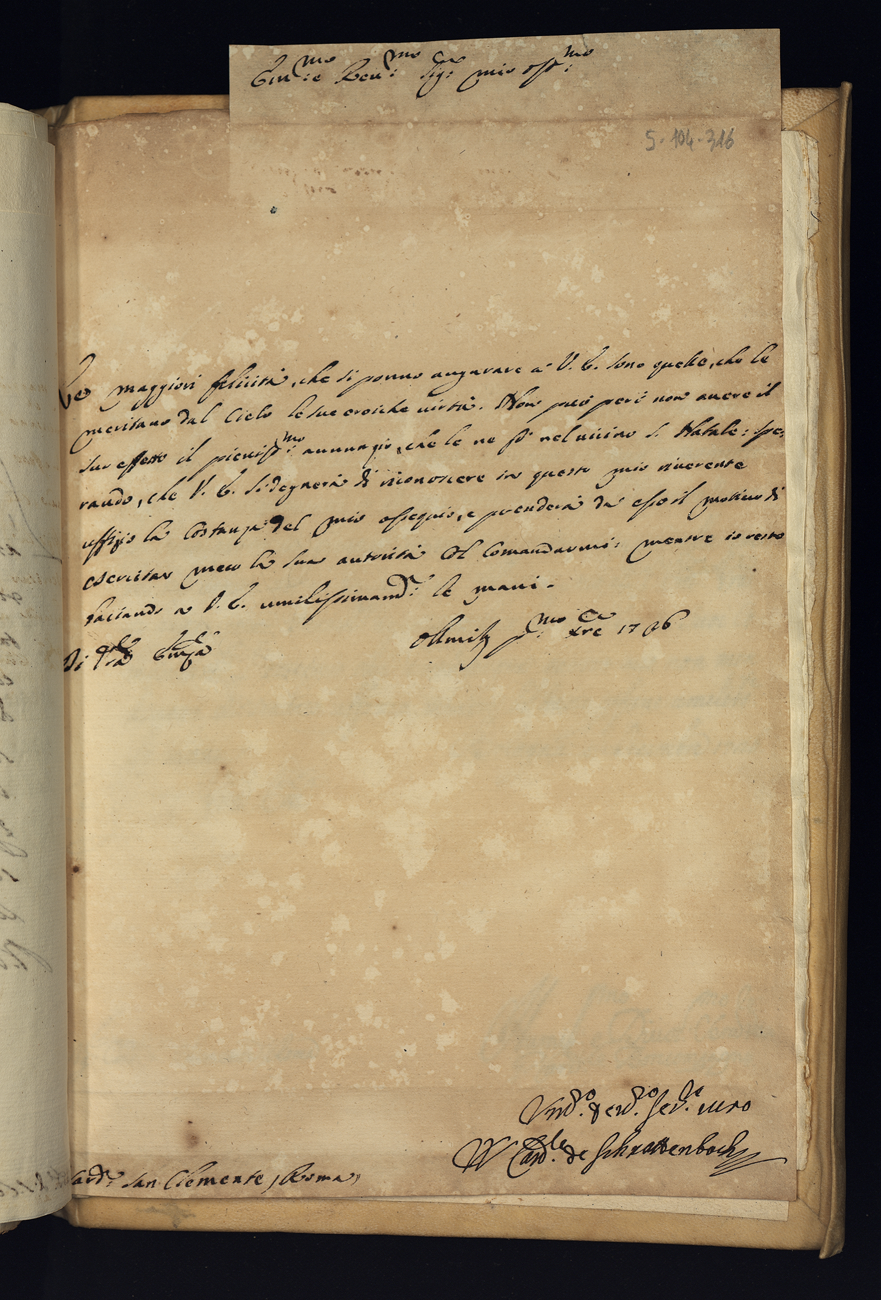 Em:mo e Rev:mo Sig:r mio oss:mo
5-104-316
Le maggiori felicità, che si ponno augurare à V. E. sono quelle, che le
meritano dal Cielo le sue eroiche virtù. Non può però non avere il
suo effetto il pieniss:mo annunzio, che le ne fò nel vicino S. Natale: spe,
rando, che V. E. si degnerà di riconoscere in questo mio riverente
uffizio la Costanza del mio ossequio, e prenderà da esso il motivo di
esercitar meco la sua autorità col Comandarmi: mentre io resto
baciando a V. E. umilissimam:te le mani.
Di V:ra Em:za
Olmitz p:mo Xbre 1736
Um:o & dev:o Ser:e vero
W Card:le de Schrattenbach
Card: San Clemente, Roma,